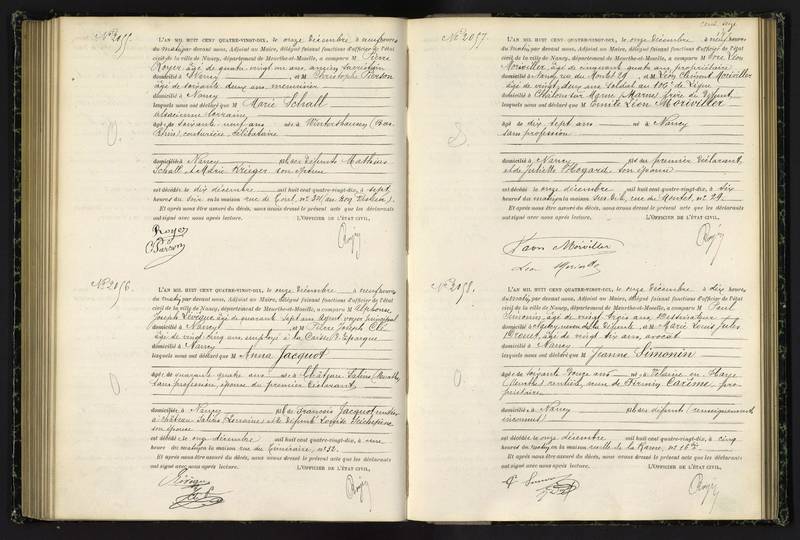 N° 2055.
L'AN MIL HUIT CENT QUATRE-VINGT-DIX, le onze Décembre à neuf heures
du matin par devant nous, Adjoint au Maire, délégué faisant fonctions d'officier de l'état
civil de la ville de Nancy, département de Meurthe-et-Moselle, a comparu M Pierre
Royer, âgé de quatre vingt un ans, ancien sacristain
domicilié à Nancy et M Christophe Pierson
âgé de soixante deux ans menuisier
domicilié à Nancy
lesquels nous ont déclaré que M Marie Schall
alsacienne lorraine,
âgée de soixante neuf ans née à Wintershausen (Bas
Rhin) couturière, célibataire
domiciliée à Nancy fille des défunts Mathias
Schall et Marie Krieger son épouse
est décédée le dix décembre mil huit cent quatre-vingt-dix, à sept
heures du soir en la maison rue de Toul, n° 34
Et après nous être assuré du décès, nous avons dressé le présent acte que les déclarants
ont signé avec nous après lecture. L'OFFICIER DE L'ÉTAT CIVIL,
Royer
C. Pierson
N° 2056.
L'AN MIL HUIT CENT QUATRE-VINGT-DIX, le onze Décembre à neuf heures
du matin par devant nous, Adjoint au Maire, délégué faisant fonctions d'officier de l'état
civil de la ville de Nancy, département de Meurthe-et-Moselle, a comparu M Alphonse
Joseph Lévêque, âgé de quarante sept ans agent voyer principal
domicilié à Nancy et M Pierre Joseph
âgé de vingt cinq ans, employé à la Caisse d'Epargne
domicilié à Nancy
lesquels nous ont déclaré que M Anna Jacquot
âgée de quarante quatre ans née à Château Salins (Meurthe)
sans profession, épouse du premier déclarant,
domiciliée à Nancy fille de François Jacquot rentier
à château Salins (Lorraine) et de défunte Louise
son épouse
est décédée le onze décembre mil huit cent quatre-vingt-dix, à une
heure du matin en la maison rue n° 52.
Et après nous être assuré du décès, nous avons dressé le présent acte que les déclarants
ont signé avec nous après lecture. L'OFFICIER DE L'ÉTAT CIVIL,
N° 2057.
L'AN MIL HUIT CENT QUATRE-VINGT-DIX, le onze décembre à neuf heures
du matin par devant nous, Adjoint au Maire, délégué faisant fonctions d'officier de l'état
civil de la ville de Nancy, département de Meurthe-et-Moselle, a comparu M
Moiviller, âgé de cinquante quatre ans, propriétaire
domicilié à Nancy rue du Montet 29 et M Léon Clément Moiviller
âgé de vingt deux ans soldat au 106e de Ligne
domicilié à Chalons sur Marne (Marne) frère du défunt
lesquels nous ont déclaré que M Emile Léon Moiviller
âgé de dix sept ans né à Nancy
sans profession
domicilié à Nancy fils du premier déclarant
et de Juliette Hogard son épouse
est décédé le onze décembre mil huit cent quatre-vingt-dix, à six
heures du matin en la maison rue du Montet n° 29
Et après nous être assuré du décès, nous avons dressé le présent acte que les déclarants
ont signé avec nous après lecture. L'OFFICIER DE L'ÉTAT CIVIL,
Moiviller
N° 2058.
L'AN MIL HUIT CENT QUATRE-VINGT-DIX, le onze Décembre à dix heures
du matin, par devant nous, Adjoint au Maire, délégué faisant fonctions d'officier de l'état
civil de la ville de Nancy, département de Meurthe-et-Moselle, a comparu M Paul
Simonin, âgé de vingt trois ans, Dessinateur
domicilié à Nancy neveu de la défunte et M Marie Louis Jules
Drouet, âgé de vingt six ans, avocat
domicilié à Nancy
lesquels nous ont déclaré que M Jeanne Simonin
âgée de soixante douze ans née à Velaine en Haye
(Meurthe) rentière, veuve de Firmin Carême, pro
priétaire
domiciliée à Nancy fille des défunts (renseignements
inconnus)
est décédée le onze décembre mil huit cent quatre-vingt-dix, à cinq
heures du matin en la maison
Et après nous être assuré du décès, nous avons dressé le présent acte que les déclarants
ont signé avec nous après lecture. L'OFFICIER DE L'ÉTAT CIVIL,